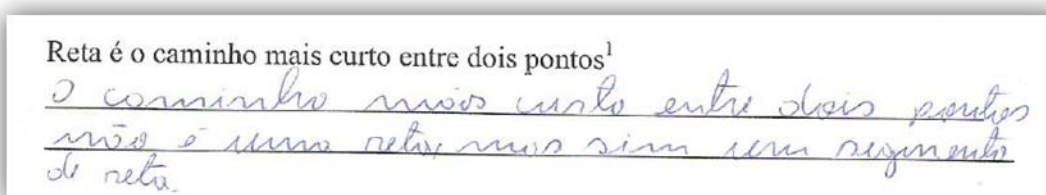 Reta é o caminho mais curto entre dois pontos¹
O caminho mais curto entre dois pontos
não é uma reta, mas sim um segmento
de reta.